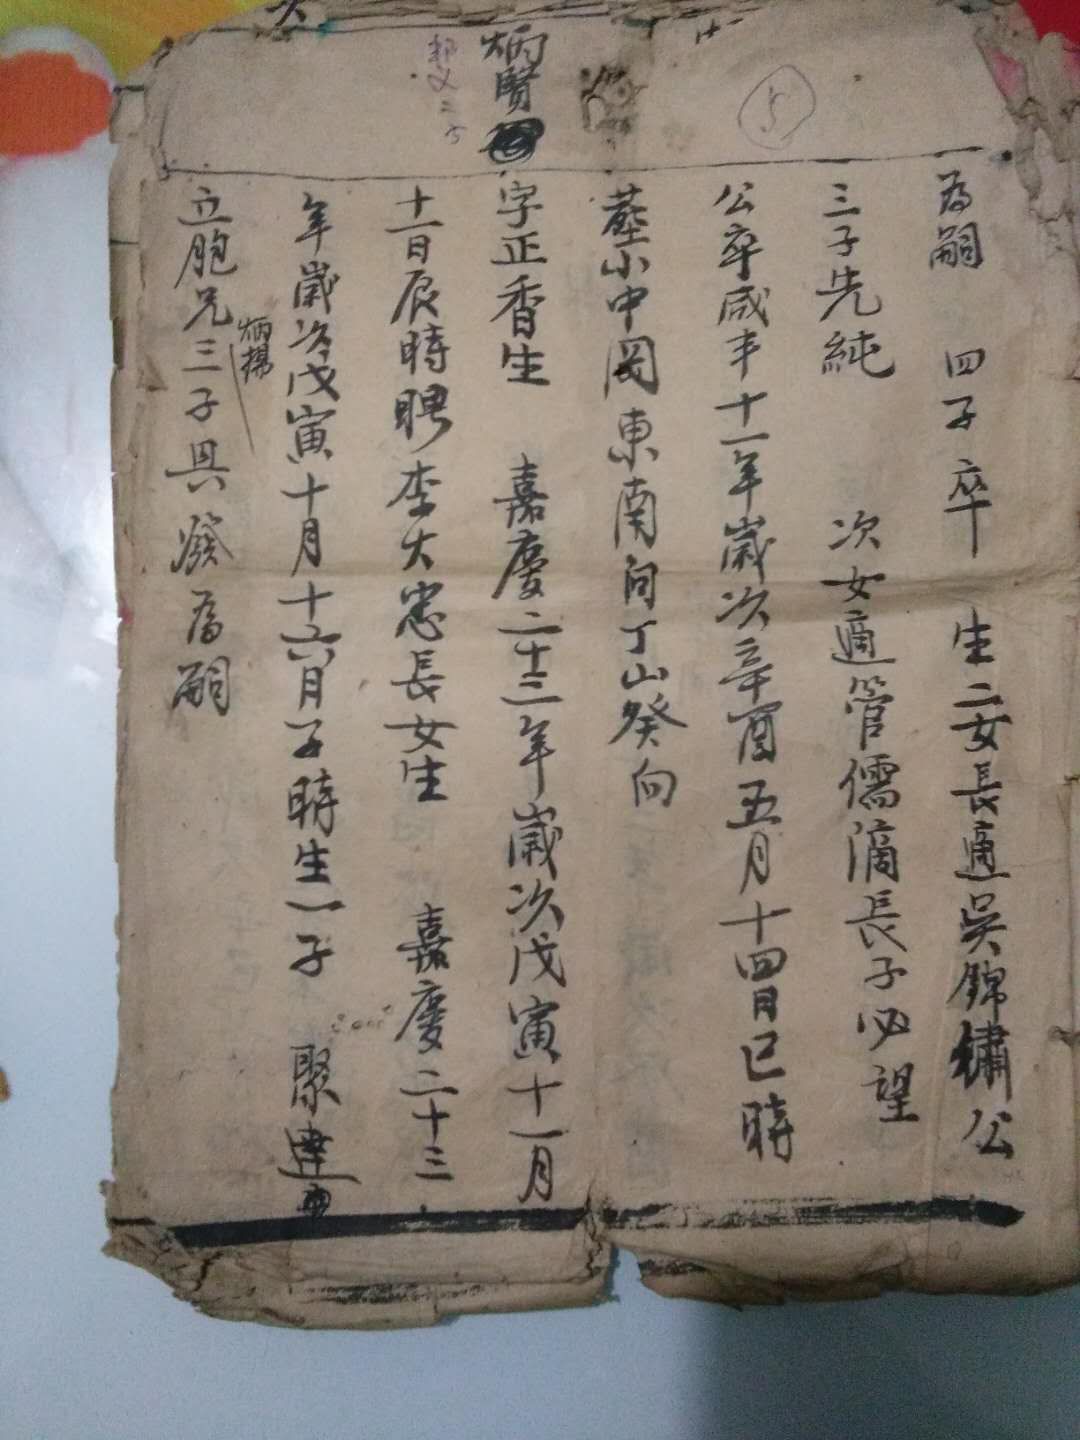 為嗣 四子卒 生二女長適吳錦繡公
三子先純 次女適管儒滴長子必望
公卒咸丰十一年歲次辛酉五月十四日巳時
塟小中岡東南向丁山癸向
炳賢
字正香生 嘉慶二十三年歲次戊寅十一月
十一日辰時聘李大忠長女生 嘉慶二十三
年歲次戊寅十月十六日子時生一子 聚達
立胞兄三子具發為嗣
5